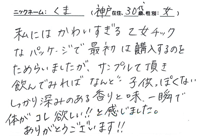 ニックネーム：くま （神戸在住、30歳、性別：女）
私にはかわいすぎる乙女チック
なパッケージで最初は購入するのを
ためらいましたが、サンプルして頂き
飲んでみればなんと？子供っぽくない
しっかり深みのある香りと味、一瞬で
体がコレ欲しい!!と感じました。
ありがとうございます!!